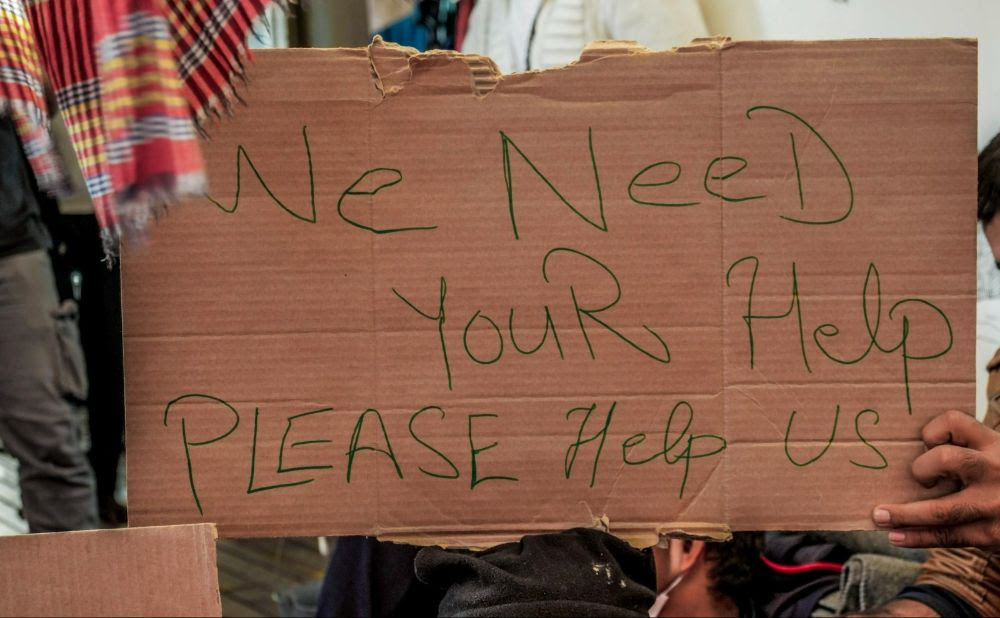 We NeeD
YouR Help
PLEASE Help US